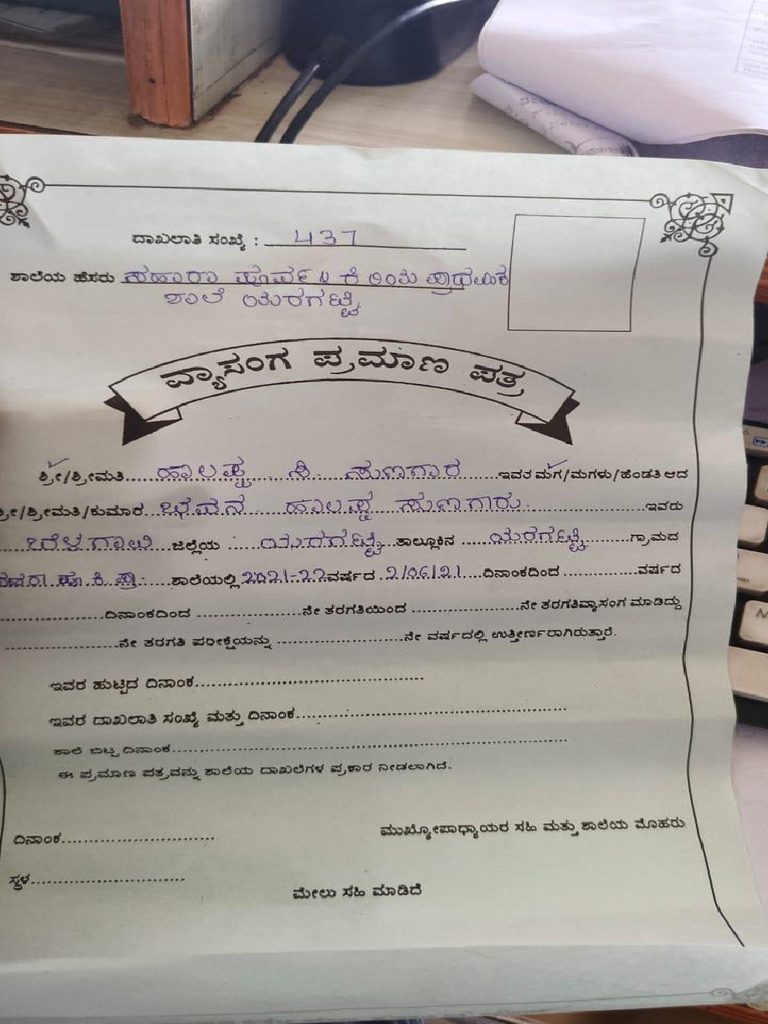 ದಾಖಲಾತಿ ಸಂಖ್ಯೆ : 437
ಶಾಲೆಯ ಹೆಸರು ಸಹಾರಾ ಪೂರ್ವ
ಶಾಲೆ ಯರಗಟ್ಟಿ
ವ್ಯಾಸಂಗ ಪ್ರಮಾಣ ಪತ್ರ
ಶ್ರೀ/ಶ್ರೀಮತಿ.....ಹಾಲಪ್ಪ....ಸಿ. ಸುಣಗಾರ......ಇವರ ಮಗ/ಮಗಳು/ಹೆಂಡತಿ ಆದ
ಶ್ರೀ/ಶ್ರೀಮತಿ/ಕುಮಾರ... ಹಾಲಪ್ಪ ಸುಣಗಾರ..................ಇವರು
...ಬೆಳಗಾವಿ...ಜಿಲ್ಲೆಯ.....ಯರಗಟ್ಟಿ..ತಾಲ್ಲೂಕಿನ....ಯರಗಟ್ಟಿ.......ಗ್ರಾಮದ
ಪೂ. ಕಿ. ಪ್ರಾ.....ಶಾಲೆಯಲ್ಲಿ 2021-22ವರ್ಷದ .2/06/21....ದಿನಾಂಕದಿಂದ..............ವರ್ಷದ
..................ದಿನಾಂಕದಿಂದ....................ನೇ ತರಗತಿಯಿಂದ....................ನೇ ತರಗತಿವ್ಯಾಸಂಗ ಮಾಡಿದ್ದು
....................ನೇ ತರಗತಿ ಪರೀಕ್ಷೆಯನ್ನು.......................ನೇ ವರ್ಷದಲ್ಲಿ ಉತ್ತೀರ್ಣರಾಗಿರುತ್ತಾರೆ.
ಇವರ ಹುಟ್ಟಿದ ದಿನಾಂಕ..........................................
ಇವರ ದಾಖಲಾತಿ ಸಂಖ್ಯೆ ಮತ್ತು ದಿನಾಂಕ..................................................
ಶಾಲೆ ಬಿಟ್ಟ ದಿನಾಂಕ........................................................................
ಈ ಪ್ರಮಾಣ ಪತ್ರವನ್ನು ಶಾಲೆಯ ದಾಖಲೆಗಳ ಪ್ರಕಾರ ನೀಡಲಾಗಿದೆ.
ದಿನಾಂಕ............................ ಮುಖ್ಯೋಪಾಧ್ಯಾಯರ ಸಹಿ ಮತ್ತು ಶಾಲೆಯ ಮೊಹರು
ಸ್ಥಳ............................
ಮೇಲು ಸಹಿ ಮಾಡಿದೆ